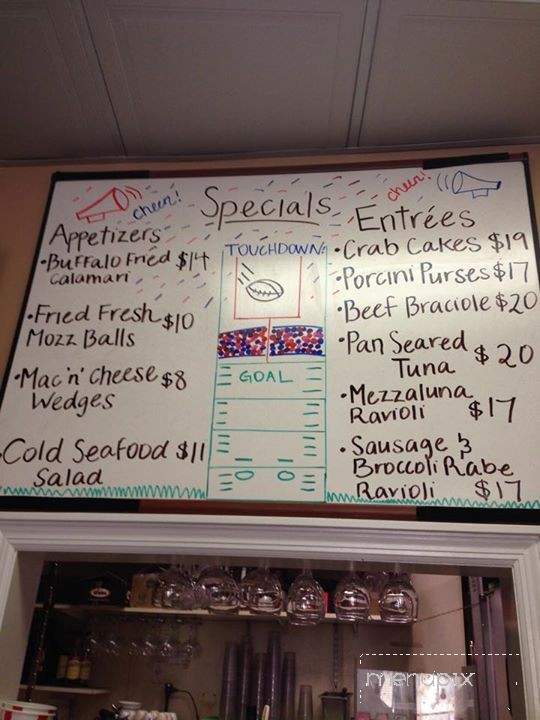 cheer!
Specials
cheer!
Appetizers
• Buffalo Fried $14
Calamari
• Fried Fresh $10
Mozz Balls
• Mac 'n' Cheese $8
Wedges
• Cold Seafood $11
Salad
TOUCHDOWN!
GOAL
Entrées
• Crab Cakes $19
• Porcini Purses $17
• Beef Braciole $20
• Pan Seared
Tuna $20
• Mezzaluna
Ravioli $17
• Sausage &
Broccoli Rabe
Ravioli $17
menupix